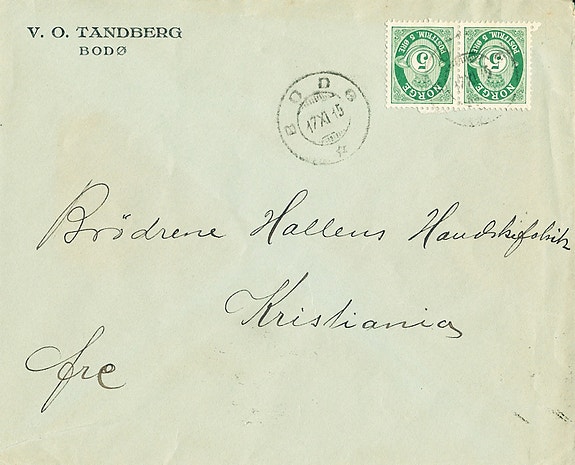 V. O. TANDBERG
BODØ
NORGE
5
POSTFRIM. 5 ØRE
NORGE
5
POSTFRIM. 5 ØRE
BODØ
17 XI 15
Brödrene Hallens Handskefabrik
Kristiania
fre